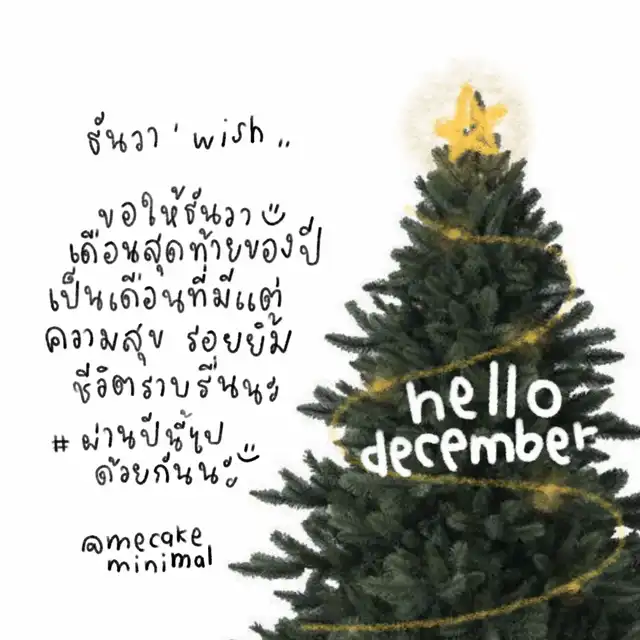 ธันวา ' wish ..
ขอให้ธันวา
เดือนสุดท้ายของปี
เป็นเดือนที่มีแต่
ความสุข รอยยิ้ม
ชีวิตราบรื่นนะ
#ผ่านปีนี้ไป
ด้วยกันนะ
@mecake
minimal
hello
december